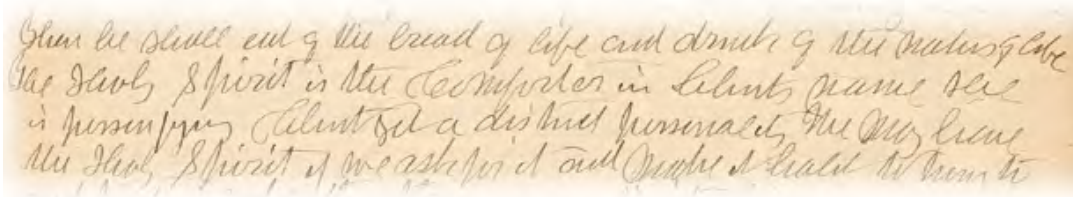 then he shall eat of the bread of life and drink of the water of life
The Holy Spirit is the Comforter in Christs name He
is personifying Christ yet a distinct personality We may have
the Holy Spirit if we ask for it and make it to